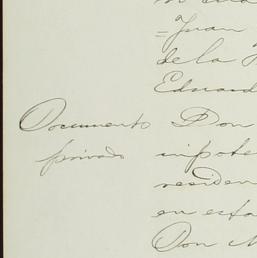 Juan
de la
Eduard
Documento Don
privado
residen
en esta
Don